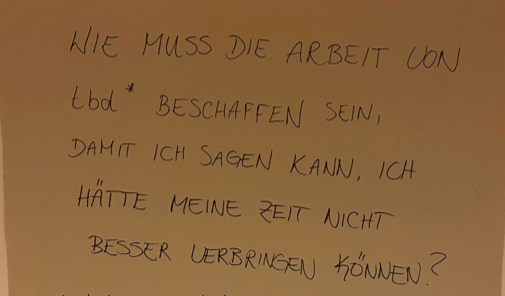 WIE MUSS DIE ARBEIT VON
tbd* BESCHAFFEN SEIN,
DAMIT ICH SAGEN KANN, ICH
HÄTTE MEINE ZEIT NICHT
BESSER VERBRINGEN KÖNNEN?